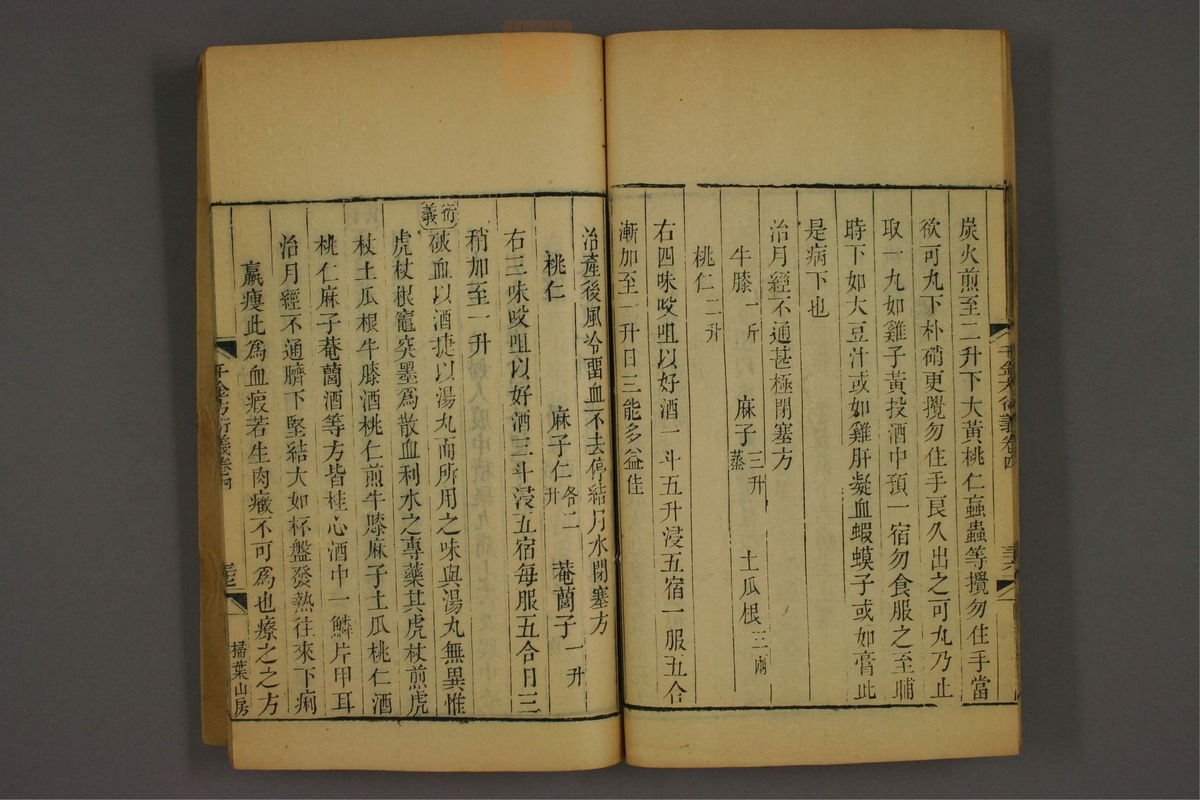 炭火煎至二升下大黃桃仁蝱蟲等攪勿住手當
欲可丸下朴硝更攪勿住手良久出之可丸乃止
取一丸如雞子黃投酒中預一宿勿食服之至晡
時下如大豆汁或如雞肝凝血蝦蟆子或如膏此
是病下也
治月經不通甚極閉塞方
牛膝一斤 麻子三升蒸 土瓜根三兩
桃仁二升
右四味㕮咀以好酒一斗五升浸五宿一服五合
漸加至一升日三能多益佳
治產後風冷畱血不去停結月水閉塞方
桃仁 麻子仁各二升 菴䕡子一升
右三味㕮咀以好酒三斗浸五宿每服五合日三
稍加至一升
衍義
破血以酒捷以湯丸而所用之味與湯丸無異惟
虎杖根竈突墨爲散血利水之專藥其虎杖煎虎
杖土瓜根牛膝酒桃仁煎牛膝麻子土瓜桃仁酒
桃仁麻子菴䕡酒等方皆桂心酒中一鱗片甲耳
治月經不通臍下堅結大如杯盤發熱往來下痢
羸瘦此爲血瘕若生肉癥不可爲也療之之方
千金方衍義卷四
掃葉山房